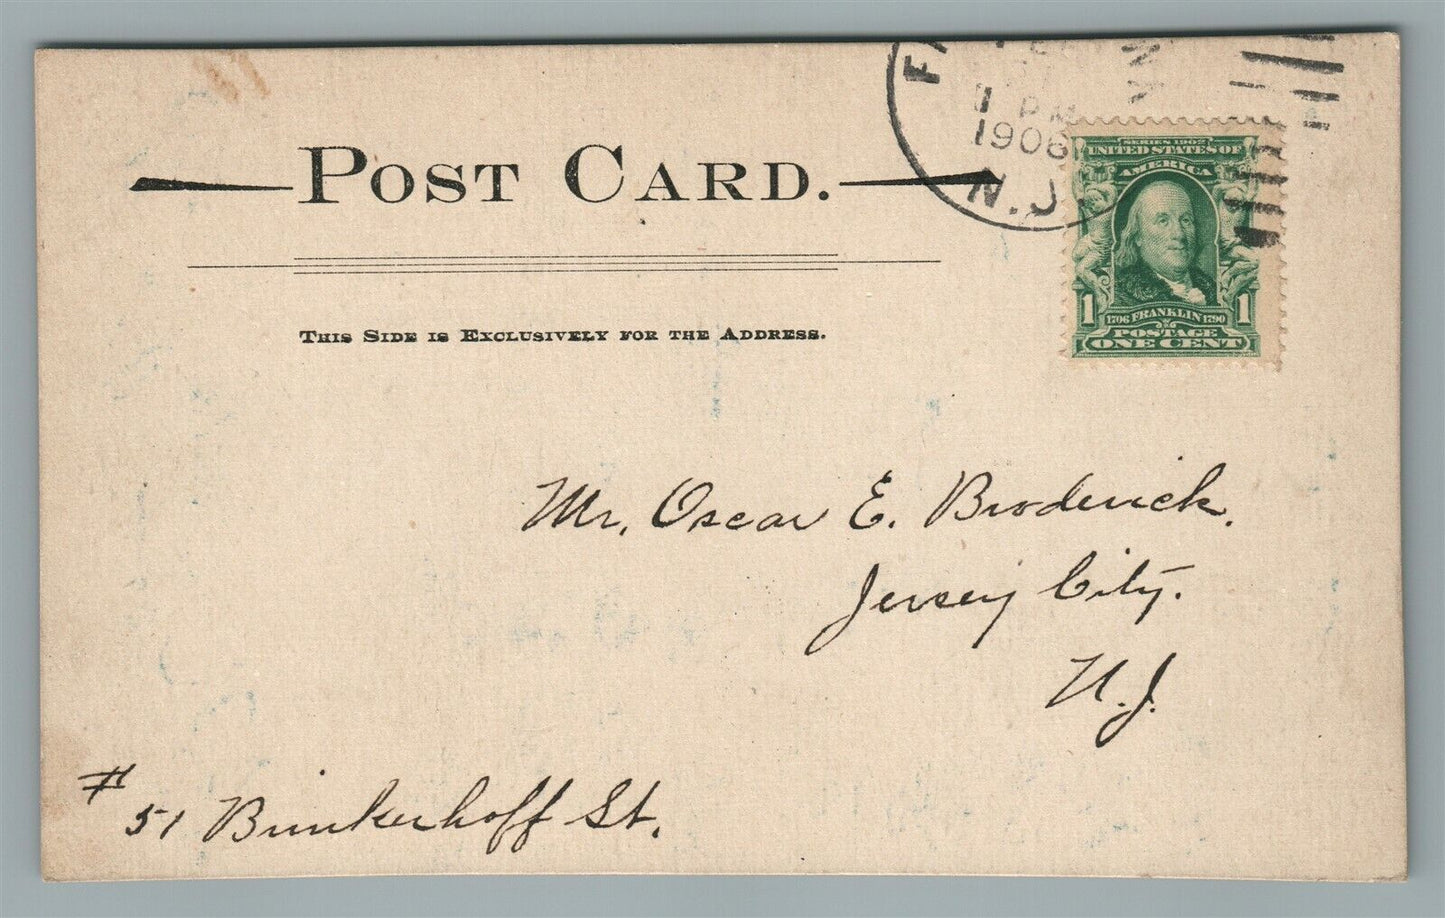 1 PM
1906
N.J.
POST CARD.
SERIES 1902
UNITED STATES OF
AMERICA
1 1
1706 FRANKLIN 1790
POSTAGE
ONE CENT
THIS SIDE IS EXCLUSIVELY FOR THE ADDRESS.
Mr. Oscar E. Broderick.
Jersey City.
N.J.
# 51 Brinkerhoff St.